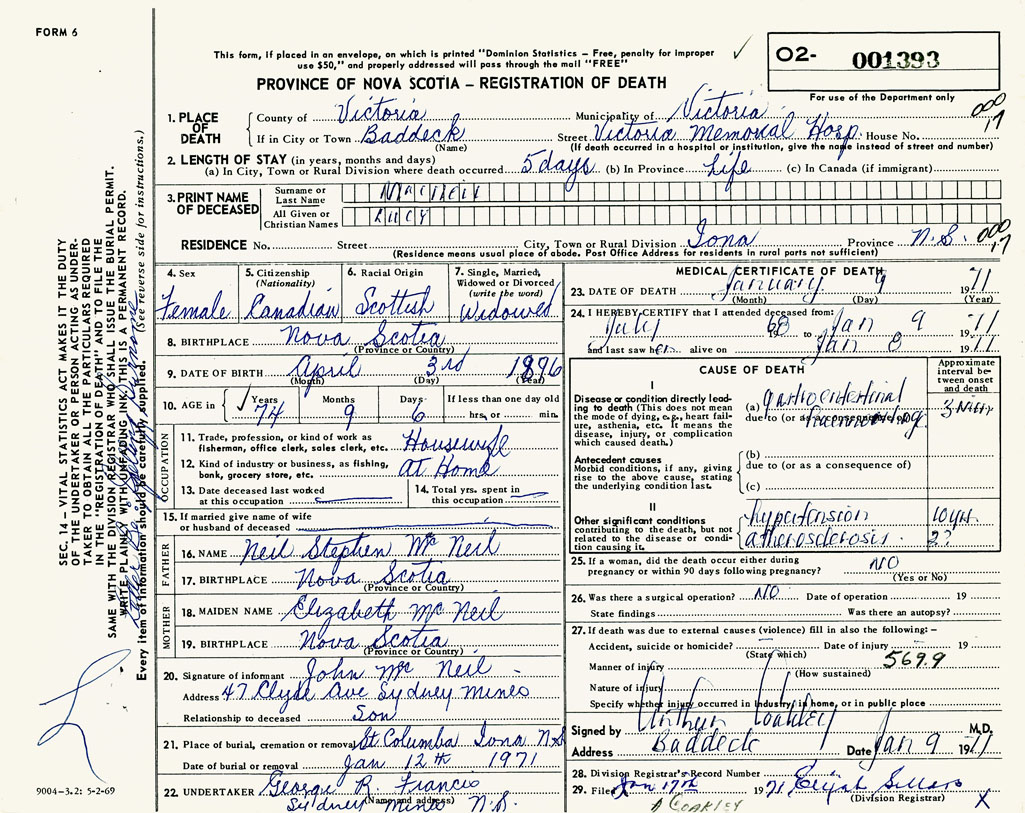 FORM 6
This form, if placed in an envelope, on which is printed "Dominion Statistics – Free, penalty for improper
use $50," and properly addressed will pass through the mail "FREE"
O2- 001393
For use of the Department only
PROVINCE OF NOVA SCOTIA – REGISTRATION OF DEATH
1. PLACE OF DEATH
County of Victoria Municipality of Victoria
If in City or Town Baddeck Street Victoria Memorial Hosp. House No.
(Name) (If death occurred in a hospital or institution, give the name instead of street and number)
000
17
2. LENGTH OF STAY (in years, months and days)
(a) In City, Town or Rural Division where death occurred 5 days (b) In Province Life (c) In Canada (if immigrant)
3. PRINT NAME OF DECEASED
Surname or Last Name MacNeil
All Given or Christian Names Lucy
RESIDENCE No. Street City, Town or Rural Division Iona Province N.S.
000
17
(Residence means usual place of abode. Post Office Address for residents in rural parts not sufficient)
4. Sex
Female
5. Citizenship (Nationality)
Canadian
6. Racial Origin
Scottish
7. Single, Married, Widowed or Divorced (write the word)
Widowed
8. BIRTHPLACE Nova Scotia
(Province or Country)
9. DATE OF BIRTH April 3rd 1896
(Month) (Day) (Year)
10. AGE in Years 74 Months 9 Days 6 If less than one day old hrs. or min.
OCCUPATION
11. Trade, profession, or kind of work as fisherman, office clerk, sales clerk, etc. Housewife
12. Kind of industry or business, as fishing, bank, grocery store, etc. At Home
13. Date deceased last worked at this occupation
14. Total yrs. spent in this occupation
15. If married give name of wife or husband of deceased
FATHER
16. NAME Neil Stephen Mc Neil
17. BIRTHPLACE Nova Scotia
(Province or Country)
MOTHER
18. MAIDEN NAME Elizabeth Mc Neil
19. BIRTHPLACE Nova Scotia
(Province or Country)
20. Signature of informant John Mc Neil
Address 47 Clyde Ave Sydney Mines
Relationship to deceased Son
21. Place of burial, cremation or removal St. Columba Iona N.S.
Date of burial or removal Jan 12th 1971
22. UNDERTAKER George R. Francis
(Name and address)
Sydney Mines N.S.
MEDICAL CERTIFICATE OF DEATH
23. DATE OF DEATH January 9 1971
(Month) (Day) (Year)
24. I HEREBY CERTIFY that I attended deceased from:
July 1968 to Jan 9 1971
and last saw her alive on Jan 8 1971
CAUSE OF DEATH
Approximate interval between onset and death
I
Disease or condition directly leading to death (This does not mean the mode of dying, e.g., heart failure, asthenia, etc. It means the disease, injury, or complication which caused death.)
(a) gastrointestinal
due to (or as a consequence of)
Antecedent causes
Morbid conditions, if any, giving rise to the above cause, stating the underlying condition last.
(b)
due to (or as a consequence of)
(c)
II
Other significant conditions contributing to the death, but not related to the disease or condition causing it.
hypertension 10 yrs.
atherosclerosis.
25. If a woman, did the death occur either during pregnancy or within 90 days following pregnancy? NO
(Yes or No)
26. Was there a surgical operation? NO Date of operation 19
State findings Was there an autopsy?
27. If death was due to external causes (violence) fill in also the following:–
Accident, suicide or homicide? Date of injury 19
(State which)
5699
Manner of injury
(How sustained)
Nature of injury
Specify whether injury occurred in industry, in home, or in public place
Signed by Arthur Coakley M.D.
Address Baddeck Date Jan 9 1971
28. Division Registrar's Record Number
29. Filed Jan 17th 1971
(Division Registrar)
A COAKLEY
X
SEC. 14 – VITAL STATISTICS ACT MAKES IT THE DUTY
OF THE UNDERTAKER OR PERSON ACTING AS UNDER-
TAKER TO OBTAIN ALL THE PARTICULARS REQUIRED
IN THE "REGISTRATION OF DEATH" AND TO FILE THE
SAME WITH THE DIVISION REGISTRAR WHO SHALL ISSUE THE BURIAL PERMIT.
WRITE PLAINLY WITH UNFADING INK. THIS IS A PERMANENT RECORD.
Every item of information should be carefully supplied. (See reverse side for instructions.)
9004–3.2: 5-2-69